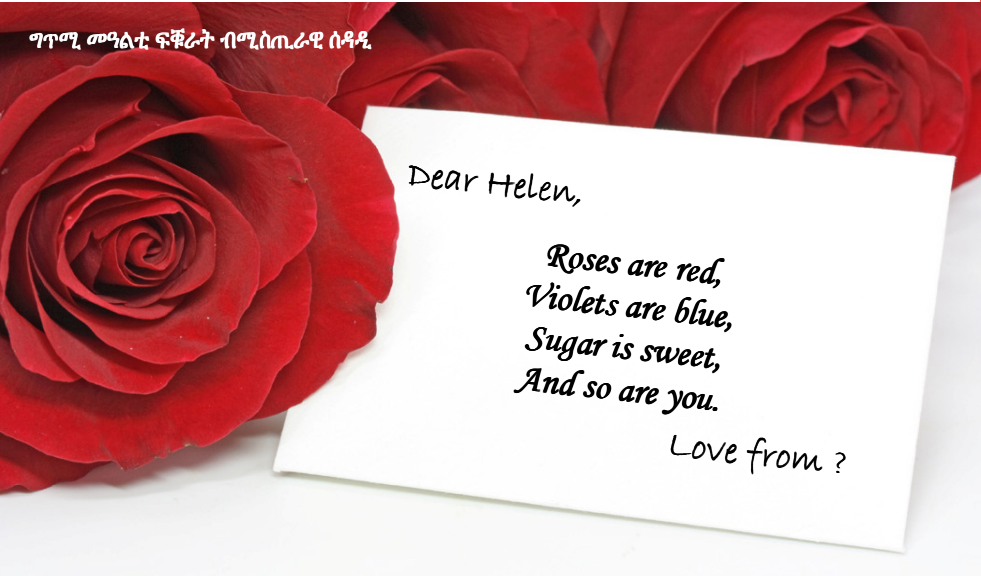 ግጥሚ መዓልቲ ፍቑራት ብሚስጢራዊ ሰዳዲ
Dear Helen,
Roses are red,
Violets are blue,
Sugar is sweet,
And so are you.
Love from ?